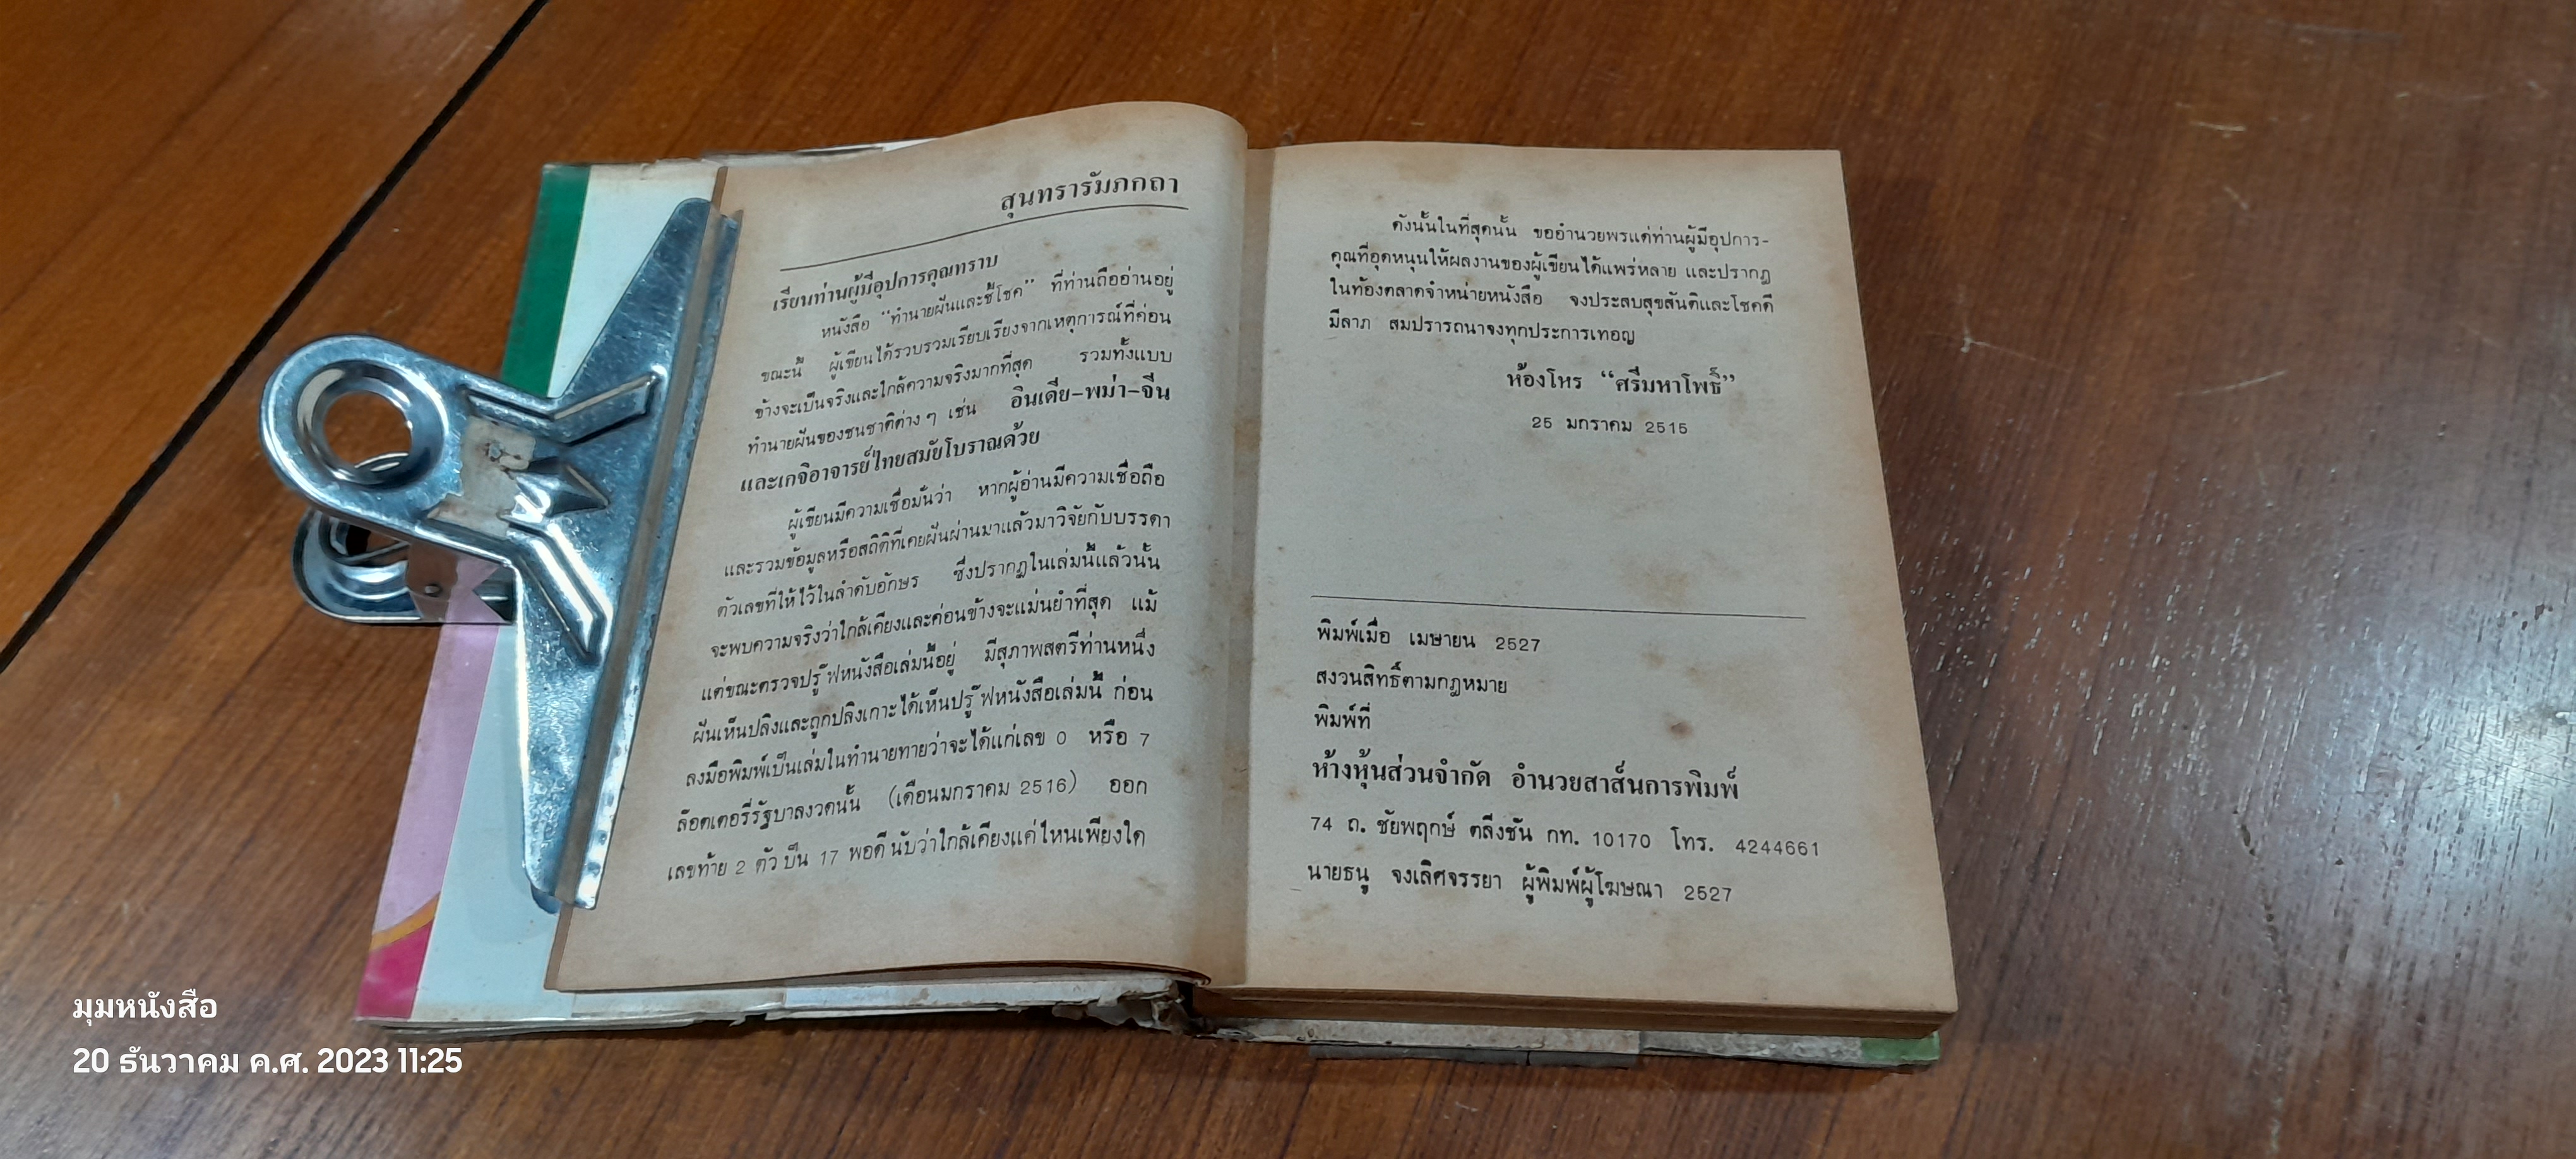 สุนทรารัมภกถา
เรียนท่านผู้มีอุปการคุณทราบ
หนังสือ “ทำนายฝันและชี้โชค” ที่ท่านถืออ่านอยู่
ขณะนี้ ผู้เขียนได้รวบรวมเรียบเรียงจากเหตุการณ์ที่ค่อน
ข้างจะเป็นจริงและใกล้ความจริงมากที่สุด รวมทั้งแบบ
ทำนายฝันของชนชาติต่าง ๆ เช่น อินเดีย-พม่า-จีน
และเกจิอาจารย์ไทยสมัยโบราณด้วย
ผู้เขียนมีความเชื่อมั่นว่า หากผู้อ่านมีความเชื่อถือ
และรวมข้อมูลหรือสถิติที่เคยฝันผ่านมาแล้วมาวิจัยกับบรรดา
ตัวเลขที่ให้ไว้ในลำดับอักษร ซึ่งปรากฏในเล่มนี้แล้วนั้น
จะพบความจริงว่าใกล้เคียงและค่อนข้างจะแม่นยำที่สุด แม้
แต่ขณะตรวจปรู๊ฟหนังสือเล่มนี้อยู่ มีสุภาพสตรีท่านหนึ่ง
ฝันเห็นปลิงและถูกปลิงเกาะได้เห็นปรู๊ฟหนังสือเล่มนี้ ก่อน
ลงมือพิมพ์เป็นเล่มในทำนายทายว่าจะได้แก่เลข 0 หรือ 7
ล๊อตเตอรี่รัฐบาลงวดนั้น (เดือนมกราคม 2516) ออก
เลขท้าย 2 ตัว บืน 17 พอดี นับว่าใกล้เคียงแค่ไหนเพียงใด
ดังนั้นในที่สุดนั้น ขออำนวยพรแด่ท่านผู้มีอุปการ-
คุณที่อุดหนุนให้ผลงานของผู้เขียนได้แพร่หลาย และปรากฏ
ในท้องตลาดจำหน่ายหนังสือ จงประสบสุขสันติและโชคดี
มีลาภ สมปรารถนาจงทุกประการเทอญ
ห้องโหร “ศรีมหาโพธิ์”
25 มกราคม 2515
พิมพ์เมื่อ เมษายน 2527
สงวนสิทธิ์ตามกฎหมาย
พิมพ์ที่
ห้างหุ้นส่วนจำกัด อำนวยสาส์นการพิมพ์
74 ถ. ชัยพฤกษ์ ตลิ่งชัน กท. 10170 โทร. 4244661
นายธนู จงเลิศจรรยา ผู้พิมพ์ผู้โฆษณา 2527
มุมหนังสือ
20 ธันวาคม ค.ศ. 2023 11:25